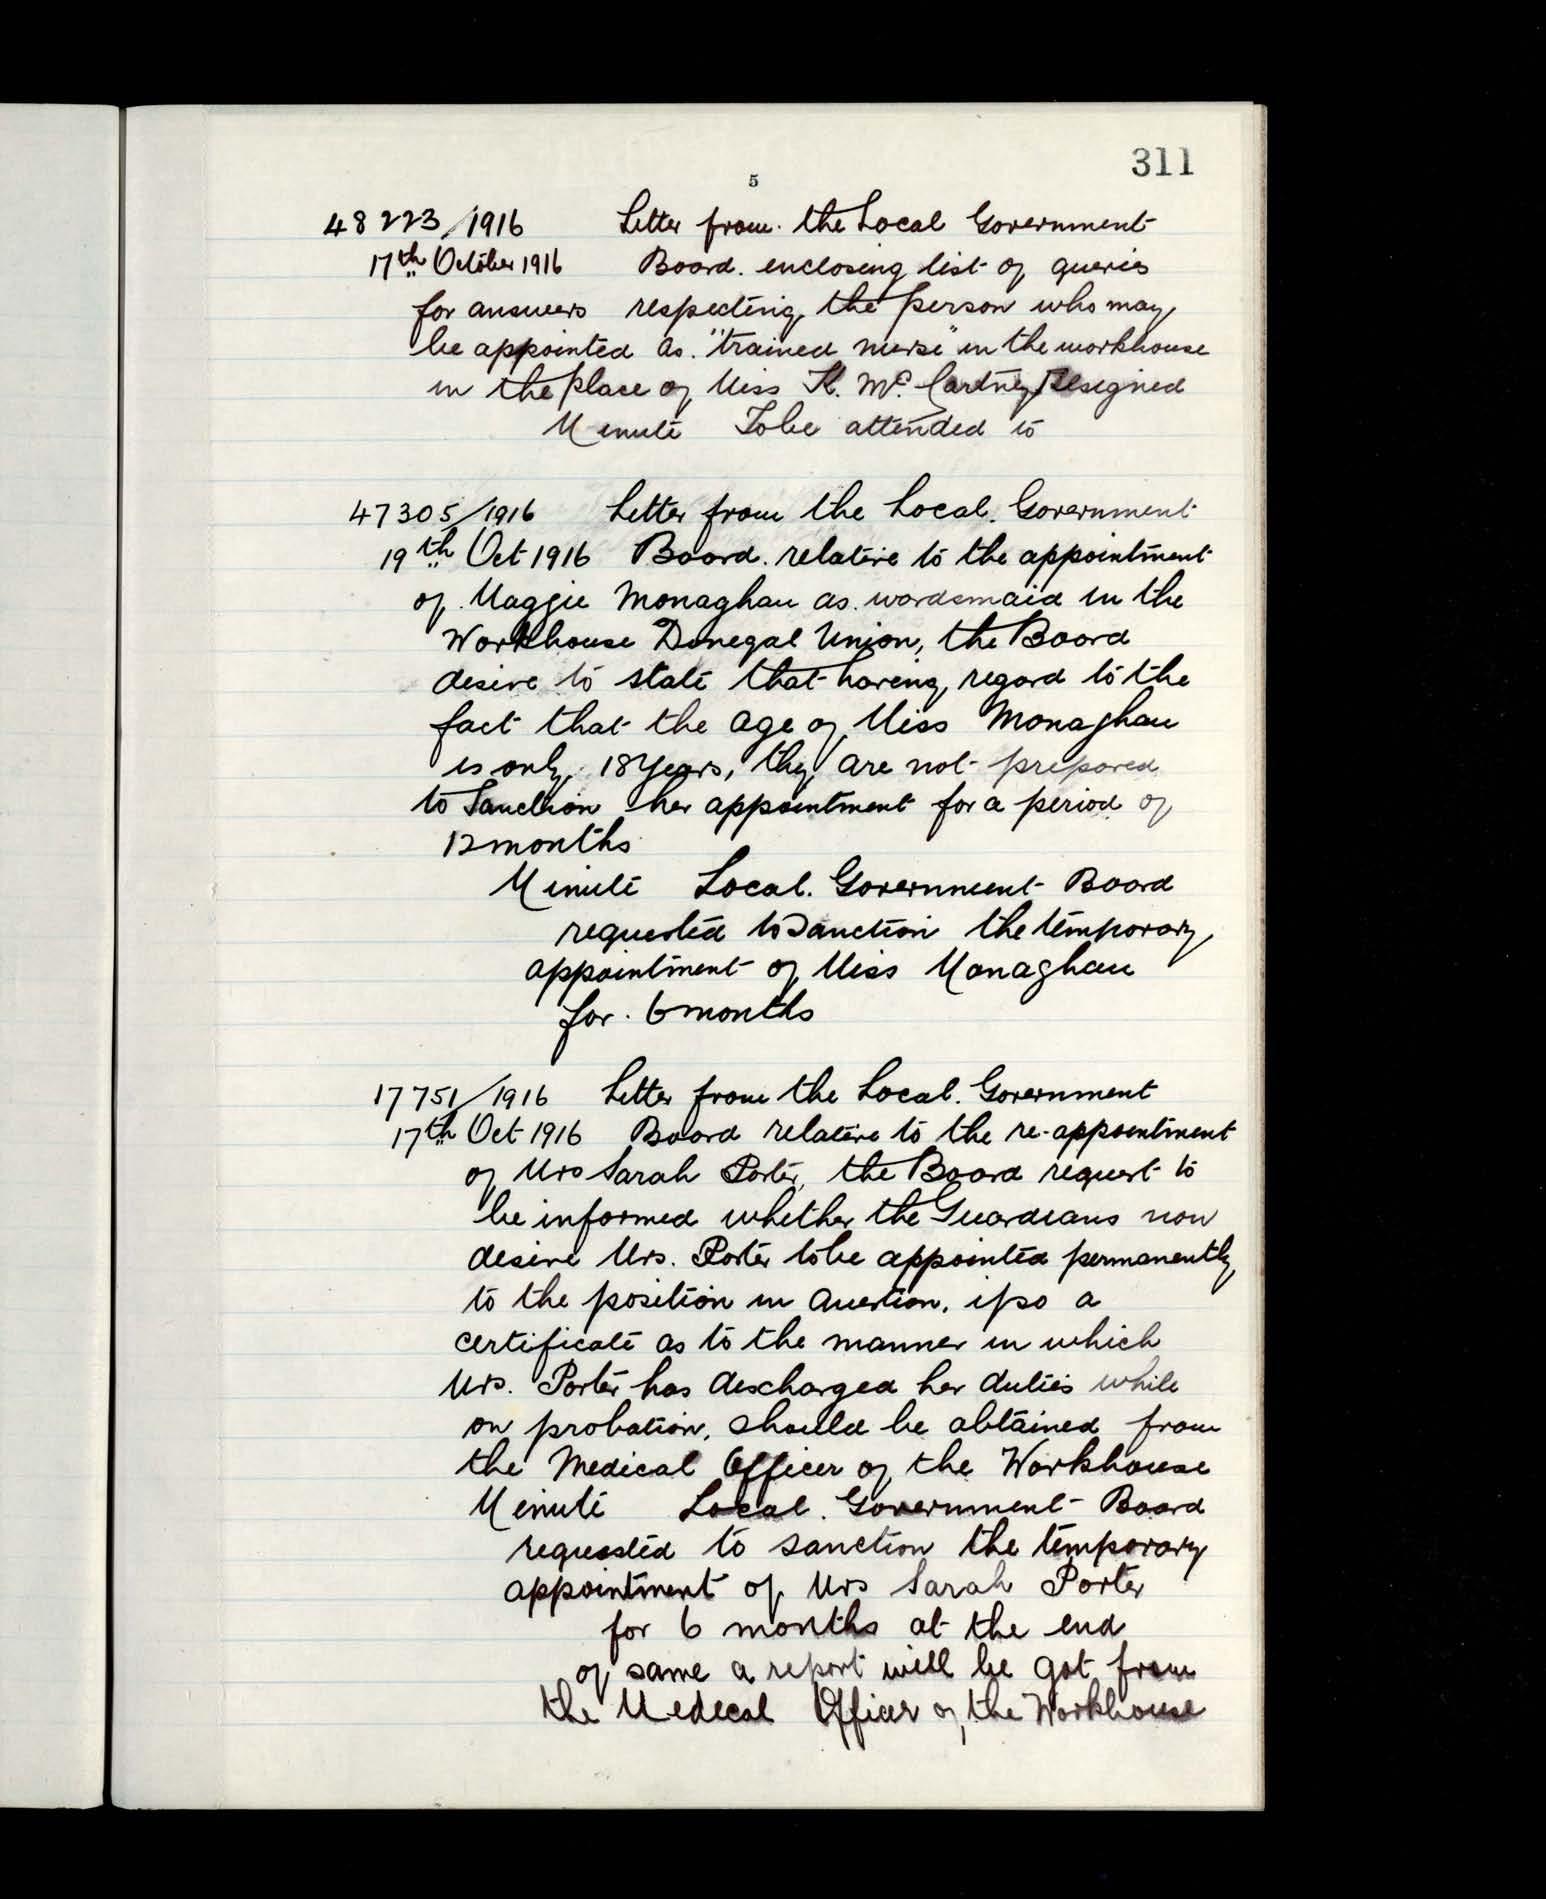 311
5
48223/1916 Letter from the Local Government
17th October 1916 Board. enclosing list of queries
for answers respecting the person who may
be appointed as "trained nurse" in the workhouse
in the place of Miss K. McCartney Resigned
Minute To be attended to
47305/1916 Letter from the Local. Government
19th Oct 1916 Board. relative to the appointment
of Maggie Monaghan as wardsmaid in the
Workhouse Donegal Union, the Board
desire to state that having regard to the
fact that the age of Miss Monaghan
is only 18 Years, they are not prepared
to Sanction her appointment for a period of
12 months
Minute Local. Government Board
requested to Sanction the temporary
appointment of Miss Monaghan
for 6 months
17751/1916 Letter from the Local. Government
17th Oct 1916 Board relative to the re-appointment
of Mrs Sarah Porter, the Board request to
be informed whether the Guardians now
desire Mrs. Porter to be appointed permanently
to the position in Question, if so a
certificate as to the manner in which
Mrs. Porter has discharged her duties while
on probation, should be obtained from
the Medical Officer of the Workhouse
Minute Local. Government Board
requested to sanction the temporary
appointment of Mrs Sarah Porter
for 6 months at the end
of same a report will be got from
the Medical Officer of the Workhouse